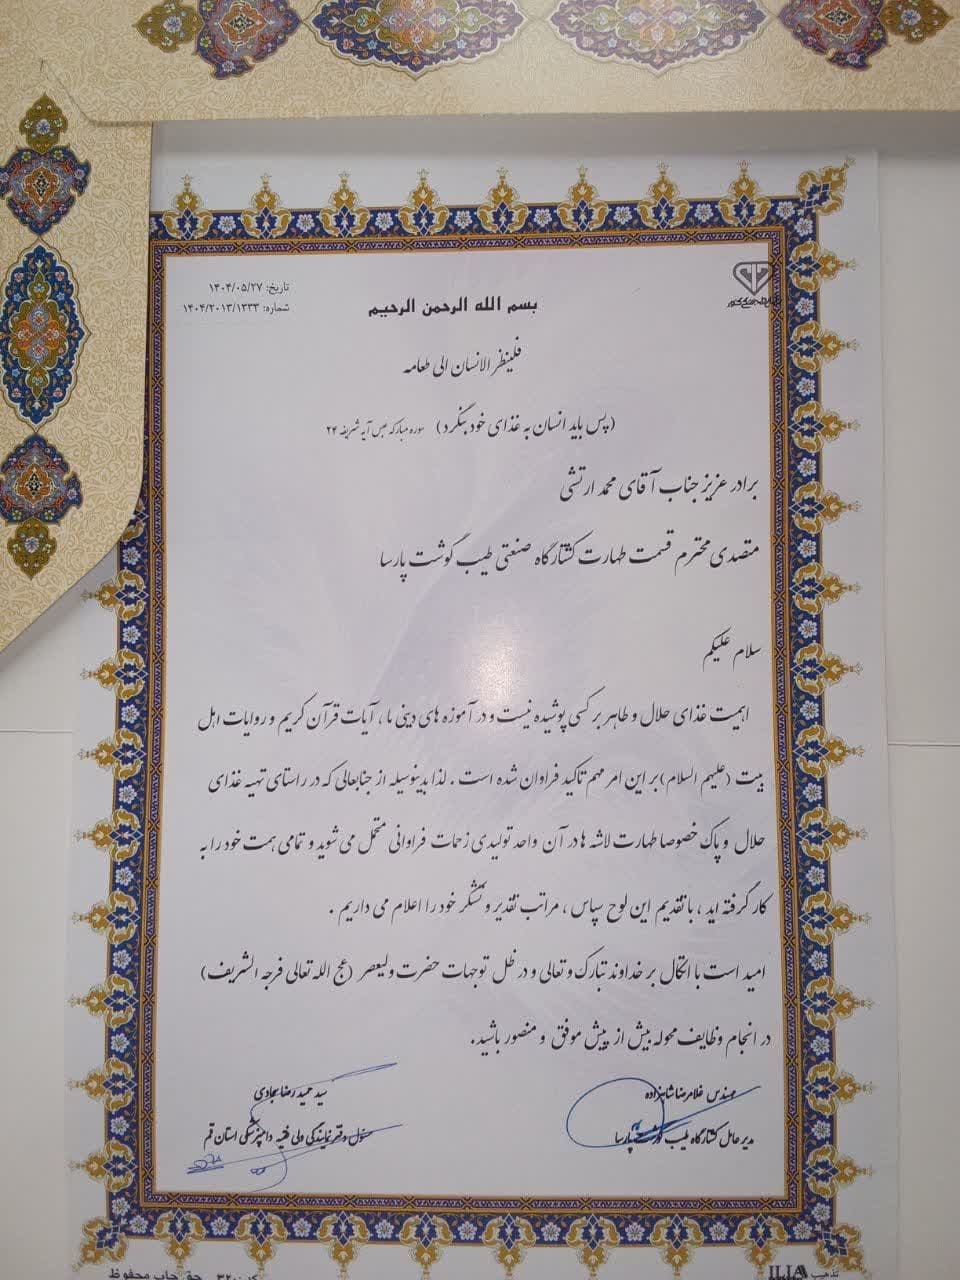 تاریخ: ۱۴۰۴/۰۵/۲۷
شماره: ۱۴۰۴/۲۰۱۳/۱۳۳۳
بسم الله الرحمن الرحیم
فلینظر الانسان الی طعامه
(پس باید انسان به غذای خود بنگرد) سوره مبارکه عبس آیه شریفه ۲۴
برادر عزیز جناب آقای محمد ارتشی
متصدی محترم قسمت طهارت کشتارگاه صنعتی طیب گوشت پارسا
سلام علیکم
اهمیت غذای حلال و طاهر بر کسی پوشیده نیست و در آموزه های دینی ما ، آیات قرآن کریم و روایات اهل
بیت (علیهم السلام) بر این امر مهم تاکید فراوان شده است . لذا بدینوسیله از جنابعالی که در راستای تهیه غذای
حلال و پاک خصوصا طهارت لاشه ها در آن واحد تولیدی زحمات فراوانی متحمل می شوید و تمامی همت خود را به
کار گرفته اید ، با تقدیم این لوح سپاس ، مراتب تقدیر و تشکر خود را اعلام می داریم .
امید است با اتکال بر خداوند تبارک و تعالی و در ظل توجهات حضرت ولیعصر (عج الله تعالی فرجه الشریف)
در انجام وظایف محوله بیش از پیش موفق و منصور باشید.
مهندس غلامرضا شاهزاده
مدیر عامل کشتارگاه طیب گوشت پارسا
سید حمید رضا سجادی
مسئول دفتر نمایندگی ولی فقیه دامپزشکی استان قم
ILIA
حق چاپ محفوظ